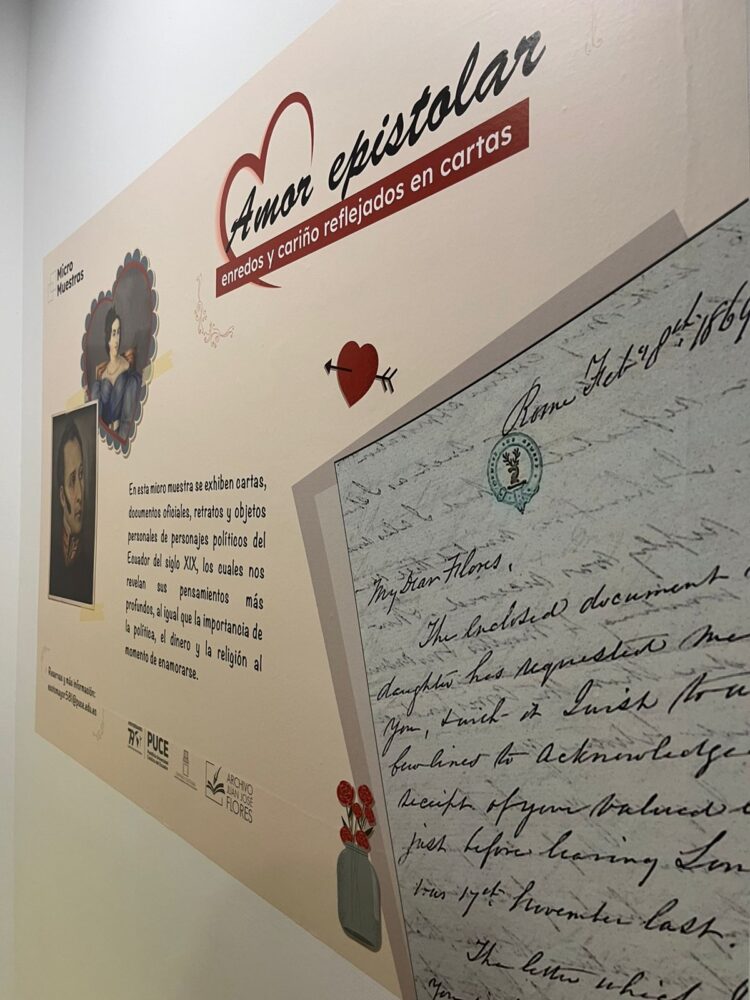 Amor epistolar
enredos y cariño reflejados en cartas
Micro
Muestras
En esta micro muestra se exhiben cartas,
documentos oficiales, retratos y objetos
personales de personajes políticos del
Ecuador del siglo XIX, los cuales nos
revelan sus pensamientos más
profundos, al igual que la importancia de
la política, el dinero y la religión al
momento de enamorarse.
Reservas y más información:
PUCE
ARCHIVO
JUAN JOSÉ
FLORES
Rome Feb 1869
My Dear Flores,
The enclosed document
daughter has requested me
you, I wish to
few lines to acknowledge
receipt of your valued
just before leaving Lon
17th November last.
The letter which
You